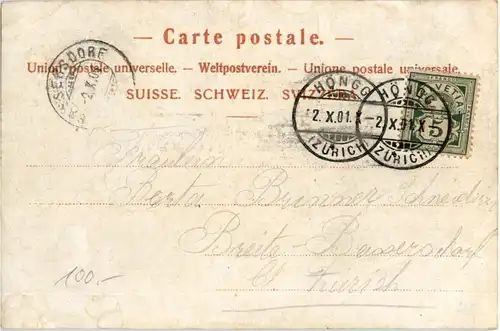 — Carte postale. —
Union postale universelle. — Weltpostverein. — Unione postale universale.
SUISSE. SCHWEIZ. SVIZZERA.
BASSERSDORF
2.X.01
HÖNGG
2.X.01.X-
(ZÜRICH)
HÖNGG
-2.X.01.X
(ZÜRICH)
HELVETIA
5
Fräulein
Berta Brunner Schneiderin
Breite-Bassersdorf
Ct. Zürich
100.-